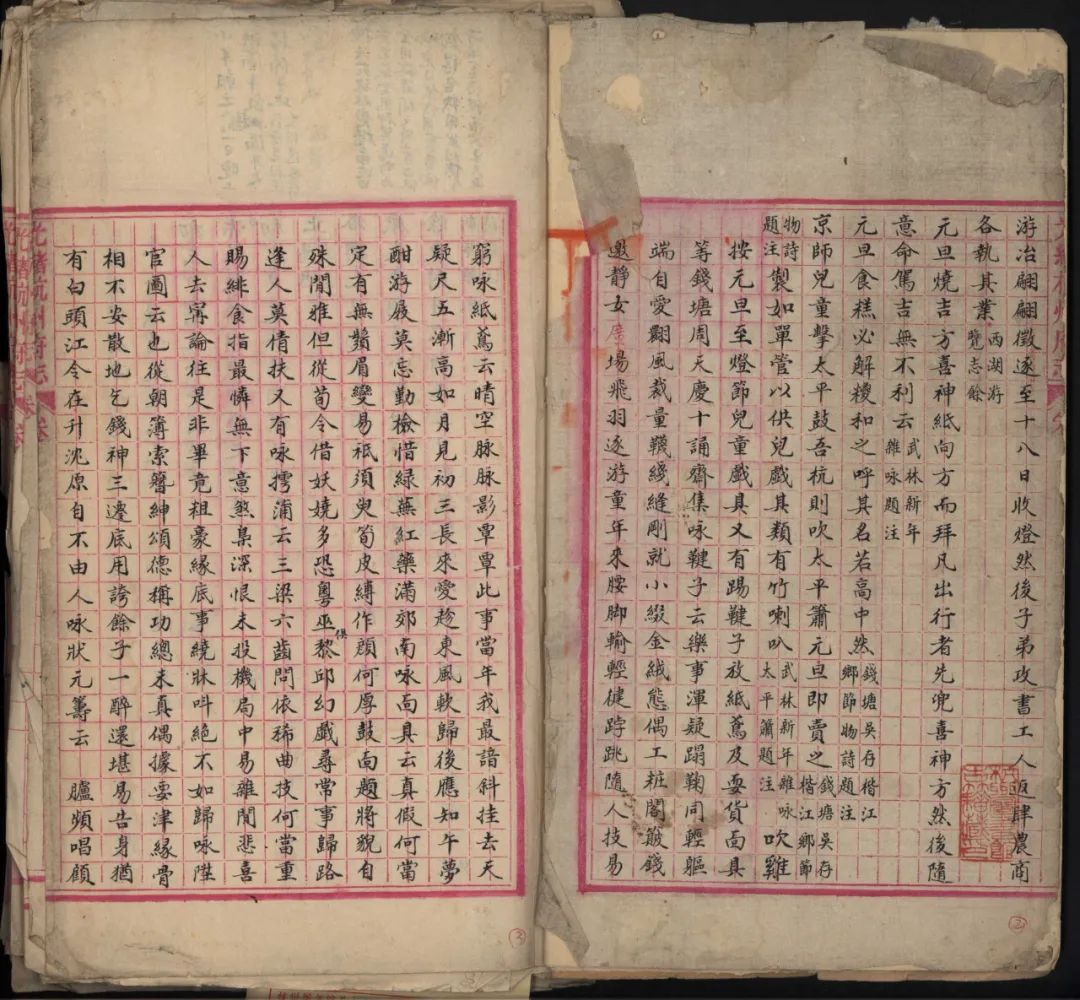 游冶翩翩徵逐至十八日收燈然後子弟攻書工人返肆農商
各執其業西湖游覽志餘
元旦燒吉方喜神紙向方而拜凡出行者先兜喜神方然後隨
意命駕吉無不利云武林新年雜咏題注
元旦食糕必解糉和之呼其名若高中然錢塘吳存楷江鄉節物詩題注
京師兒童擊太平鼓吾杭則吹太平簫元旦即賣之錢塘吳存楷江鄉節
物詩題注製如單管以供兒戲其類有竹喇叭武林新年雜咏太平簫題注吹雞
按元旦至燈節兒童戲具又有踢鞬子放紙鳶及耍貨面具
等錢塘周天慶十誦齋集咏鞬子云樂事渾疑蹋鞠同輕軀
端自愛翾風裁量韈綫縫剛就小綴金絨態偶工粧閣簸錢
邀靜女廣場飛羽逐游童年來腰脚輸輕健踔跳隨人技易
窮咏紙鳶云晴空脉脉影覃覃此事當年我最諳斜挂去天
疑尺五漸高如月見初三長來愛趁東風軟歸後應知午夢
酣游屐莫忘勤檢惜綠蕪紅藥滿郊南咏面具云真假何當
定有無鬚眉變易祇須臾筍皮縛作顏何厚鼓面題將貌自
殊閒雅但從荀令借妖嬈多恐粤巫供黎邱幻戲尋常事歸路
逢人莫倩扶又有咏摴蒲云三梁六齒問依稀曲技何當重
賜緋食指最憐無下意煞梟深恨未投機局中易雜閒悲喜
人去甯論往是非畢竟粗豪緣底事繞牀呌絕不如歸咏陞
官圖云也從朝簿索簪紳頌德稱功總未真偶據要津緣骨
相不安散地乞錢神三邊底用誇餘子一醉還堪易告身猶
有白頭江令在升沈原自不由人咏狀元籌云 臚頻唱顧
光緒杭州府志
卷
②
③